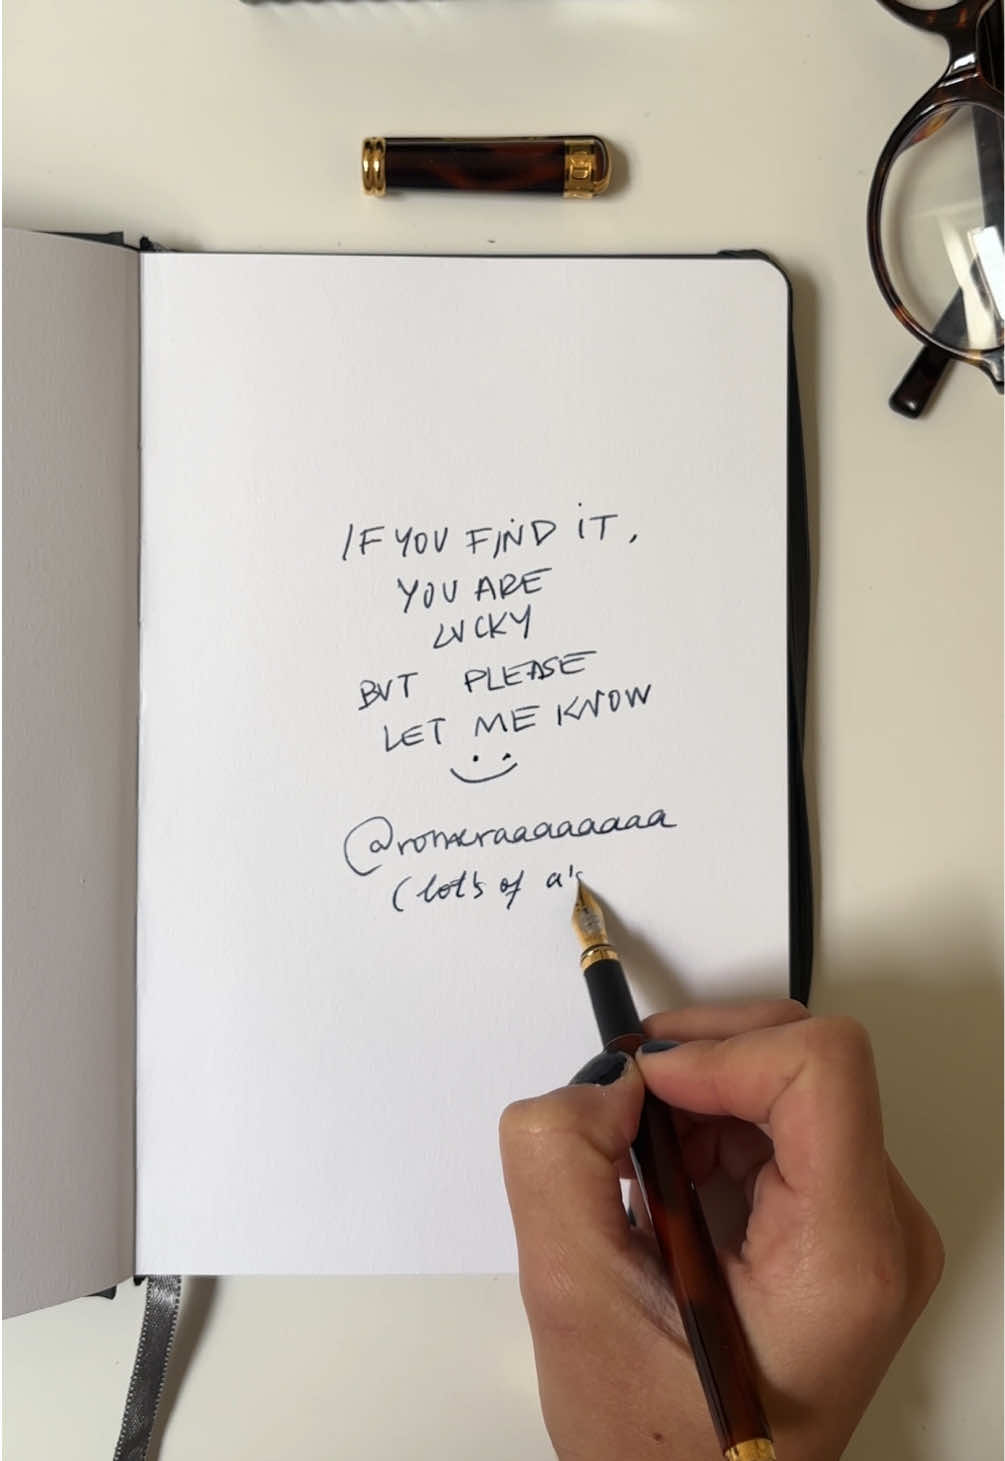 IF YOU FIND IT,
YOU ARE
LUCKY
BUT PLEASE
LET ME KNOW
@romeraaaaaaaaa
(lot's of a's